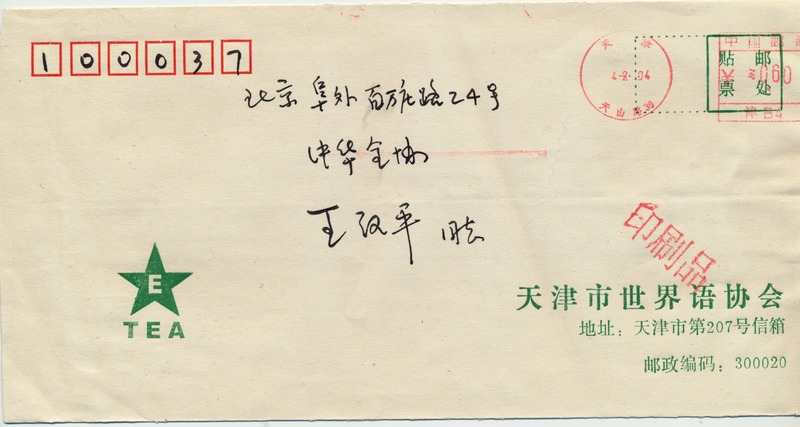 100037
北京阜外百万庄路24号
中华全协
王汉平 同志
天津
4-2 04
天山路30
贴邮
票处
中国邮政
天津 060
津B4
印刷品
E
TEA
天津市世界语协会
地址：天津市第207号信箱
邮政编码：300020